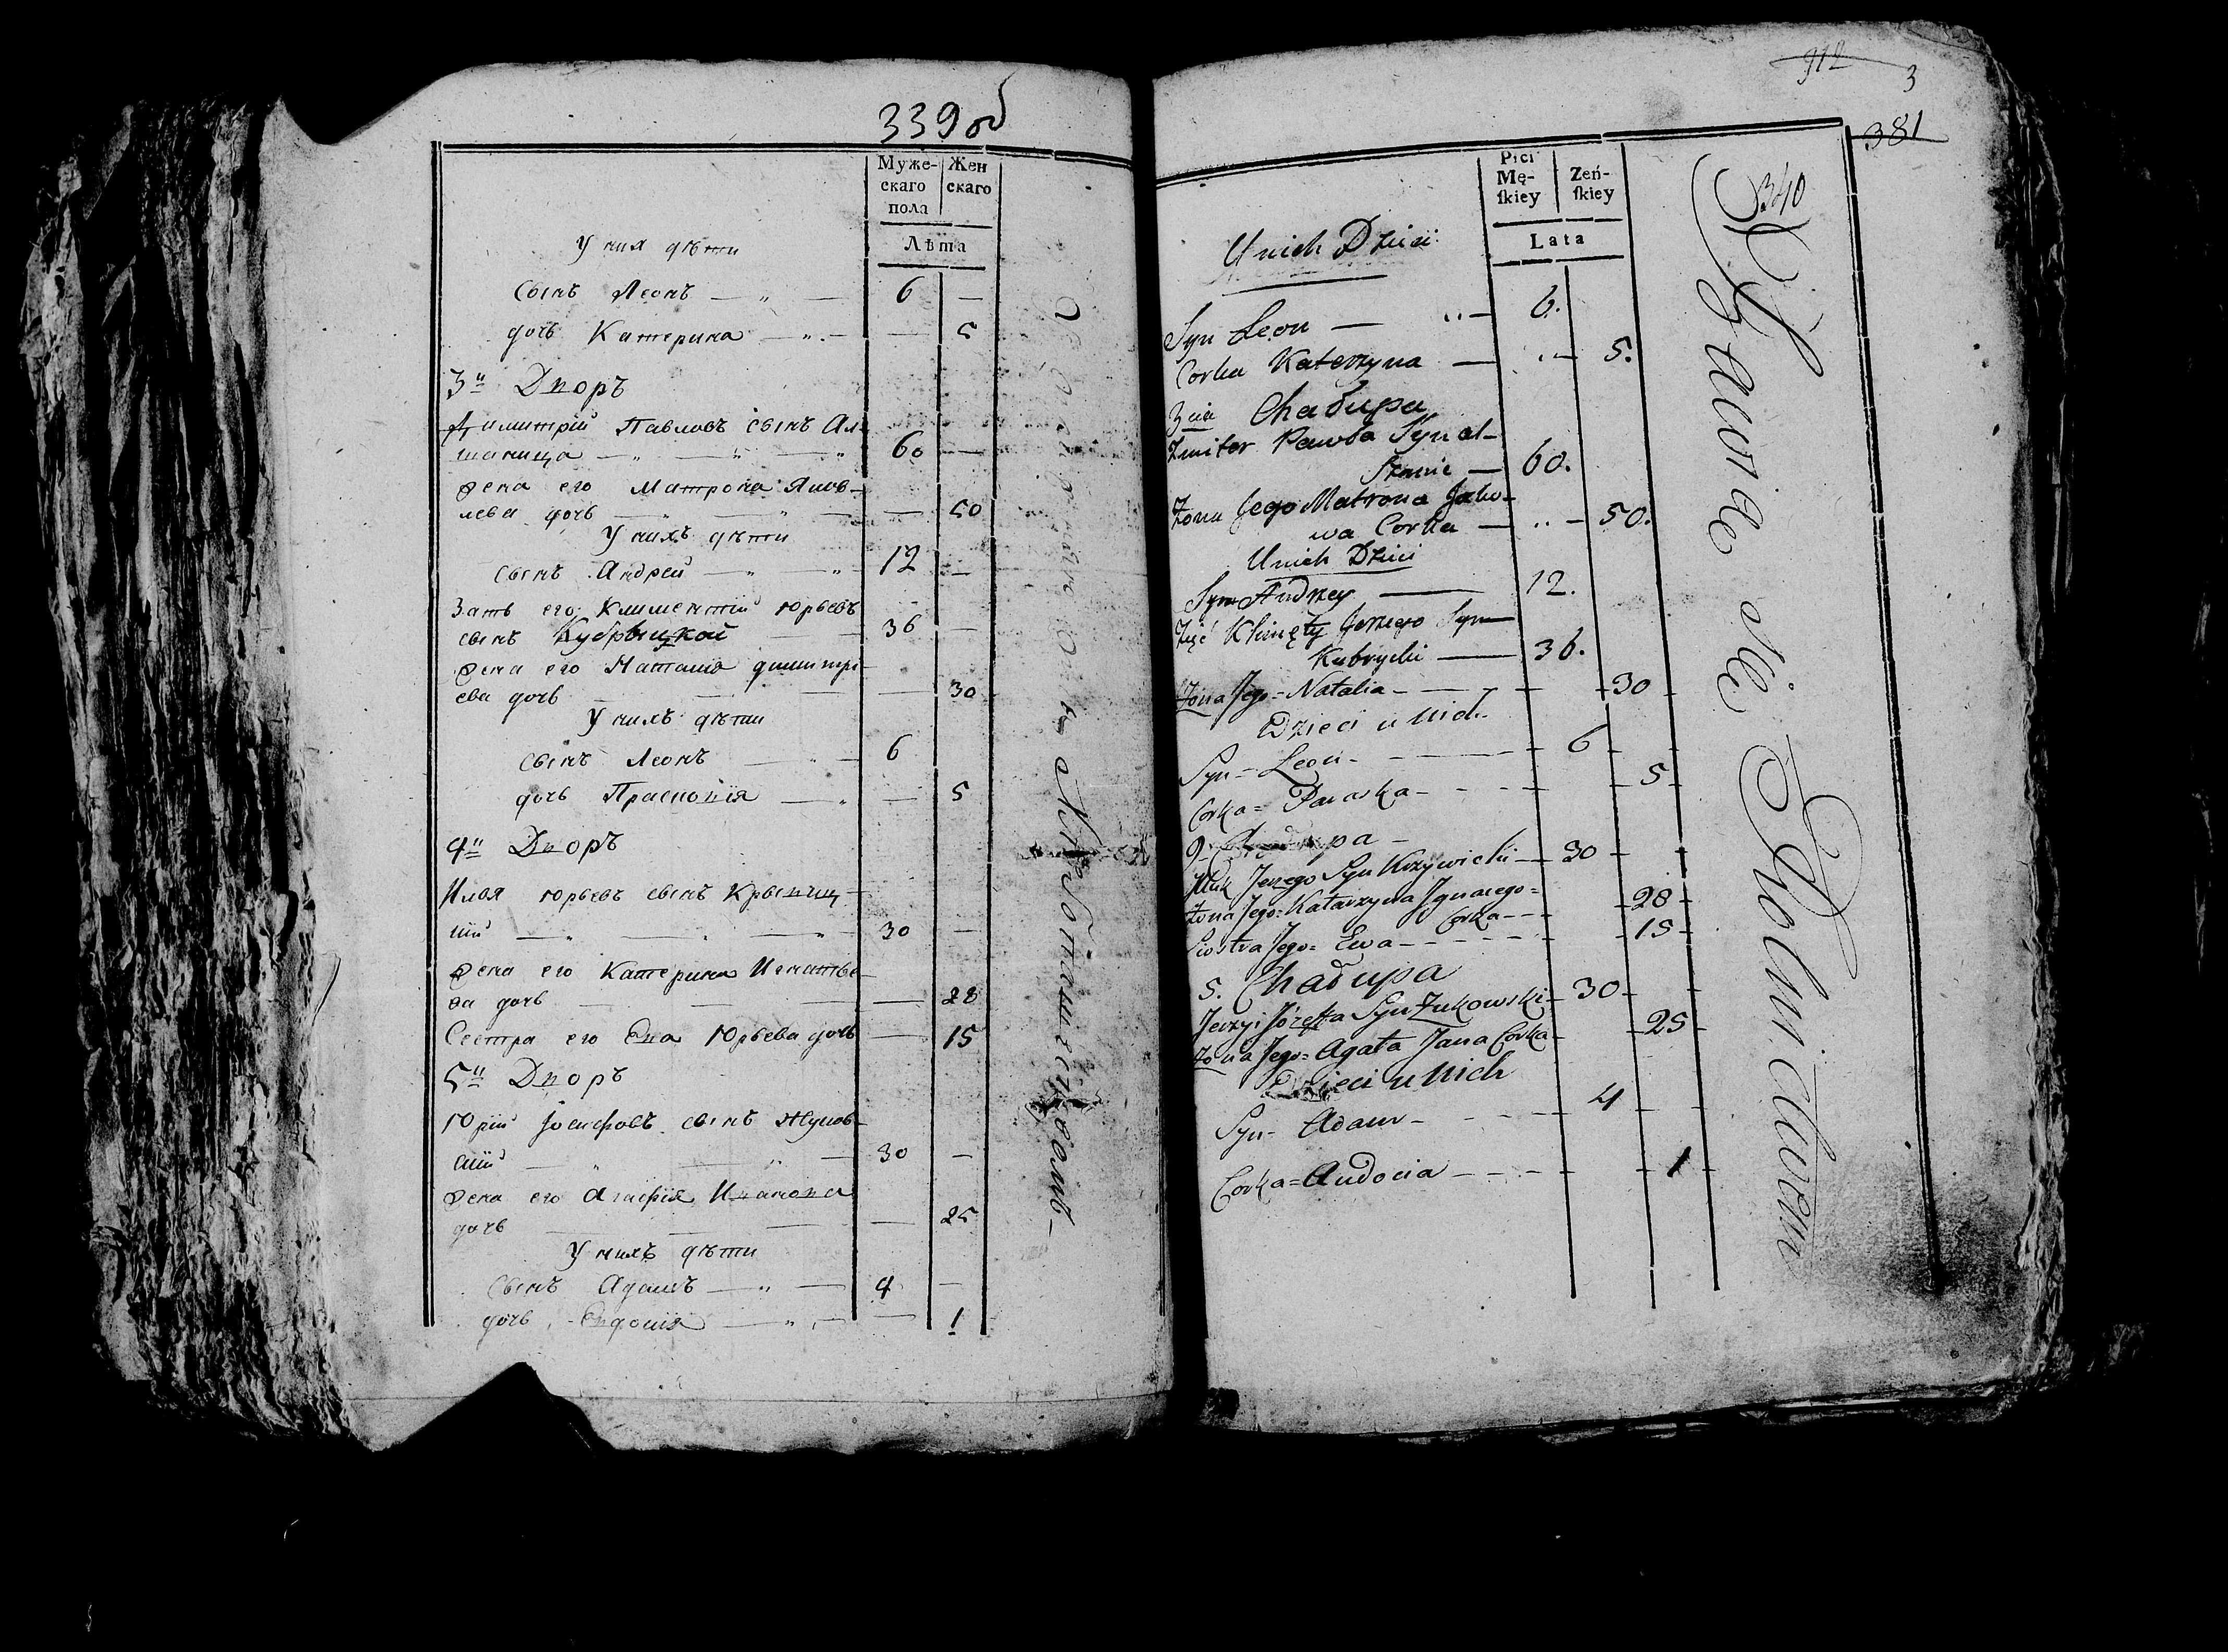 339 об
Муже-
скаго
пола
Жен
скаго
Лѣта
У них дѣти
сынъ Леонъ — 6 —
дочь Катерина — — 5
3й Дворъ
Димитрій Павловъ сынъ Ал-
шаница — 60 —
жена его Матрона Яков-
лева дочь — — 50
У нихъ дѣти
сынъ Андрей — 12 —
Зять его Климентій Юрьевъ
сынъ Кубрыцкой 36 —
жена его Наталія димитрі-
ева дочь — — 30
У нихъ дѣти
сынъ Леонъ — 6
дочь Прасковія — — 5
4й Дворъ
Илья Юрьевъ сынъ Крывиц-
кій — 30 —
жена его Катерина Игнатье-
ва дочь — — 28
Сестра его Ева Юрьева дочь — 15
5й Дворъ
Юрій Іосифовъ сынъ Жуков-
скій — 30 —
жена его Агафія Иванова
дочь — — 25
У нихъ дѣти
Сынъ Адамъ — 4 —
дочь Евдокія — — 1
912
3
381
340
Płci
Mę-
ſkiey
Zeń-
ſkiey
Lata
U nich Dzieci
Syn Leon — 6.
Corka Katerzyna — 5.
3cia Chałupa
Zmiter Pawła Syn al-
szanic — 60.
Zona Jego Matrona Jako-
wa Corka — 50.
U nich Dzieci
Syn Andrzey — 12.
Zięć Klimęty Jerzego Syn
Kubrycki — 36.
Zona Jego = Natalia — 30
Dzieci u Nich
Syn = Leon — 6
Corka = Paraska — 5
Chałupa
Jerzego Syn Krzywicki — 30
Zona Jego = Katarzyna Jgnacego =
Corka — 28
Siostra Jego = Ewa — 15
5. Chałupa
Jerzyi Józefa Syn Zukowski — 30
Zona Jego = Agata Jana Corka — 25
Dzieci u Nich
Syn = Adam — 4
Corka = Audocia — 1